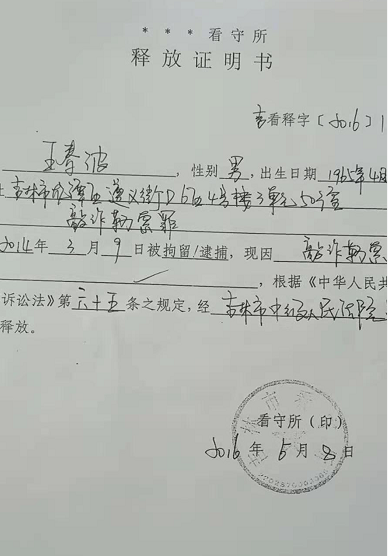 * * * 看守所
释放证明书
吉看释字〔2016〕1
王春波，性别男，出生日期1965年4月
吉林市龙潭区遵义街D6区4号楼3单元50号
敲诈勒索罪
2014年3月9日被拘留/逮捕，现因敲诈勒索
，根据《中华人民共
诉讼法》第六十五条之规定，经吉林市中级人民法院
释放。
看守所（印）
2016年5月8日